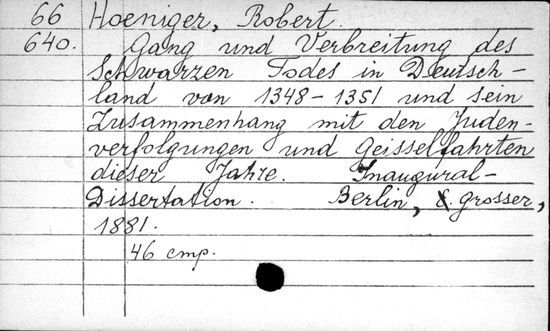 66 Hoeniger, Robert.
640. Gang und Verbreitung des
Schwarzen Todes in Deutsch-
land von 1348-1351 und sein
Zusammenhang mit den Juden-
verfolgungen und Geisselfahrten
dieser Jahre. Inaugural-
Dissertation. Berlin, E. Grosser,
1881.
46 стр.